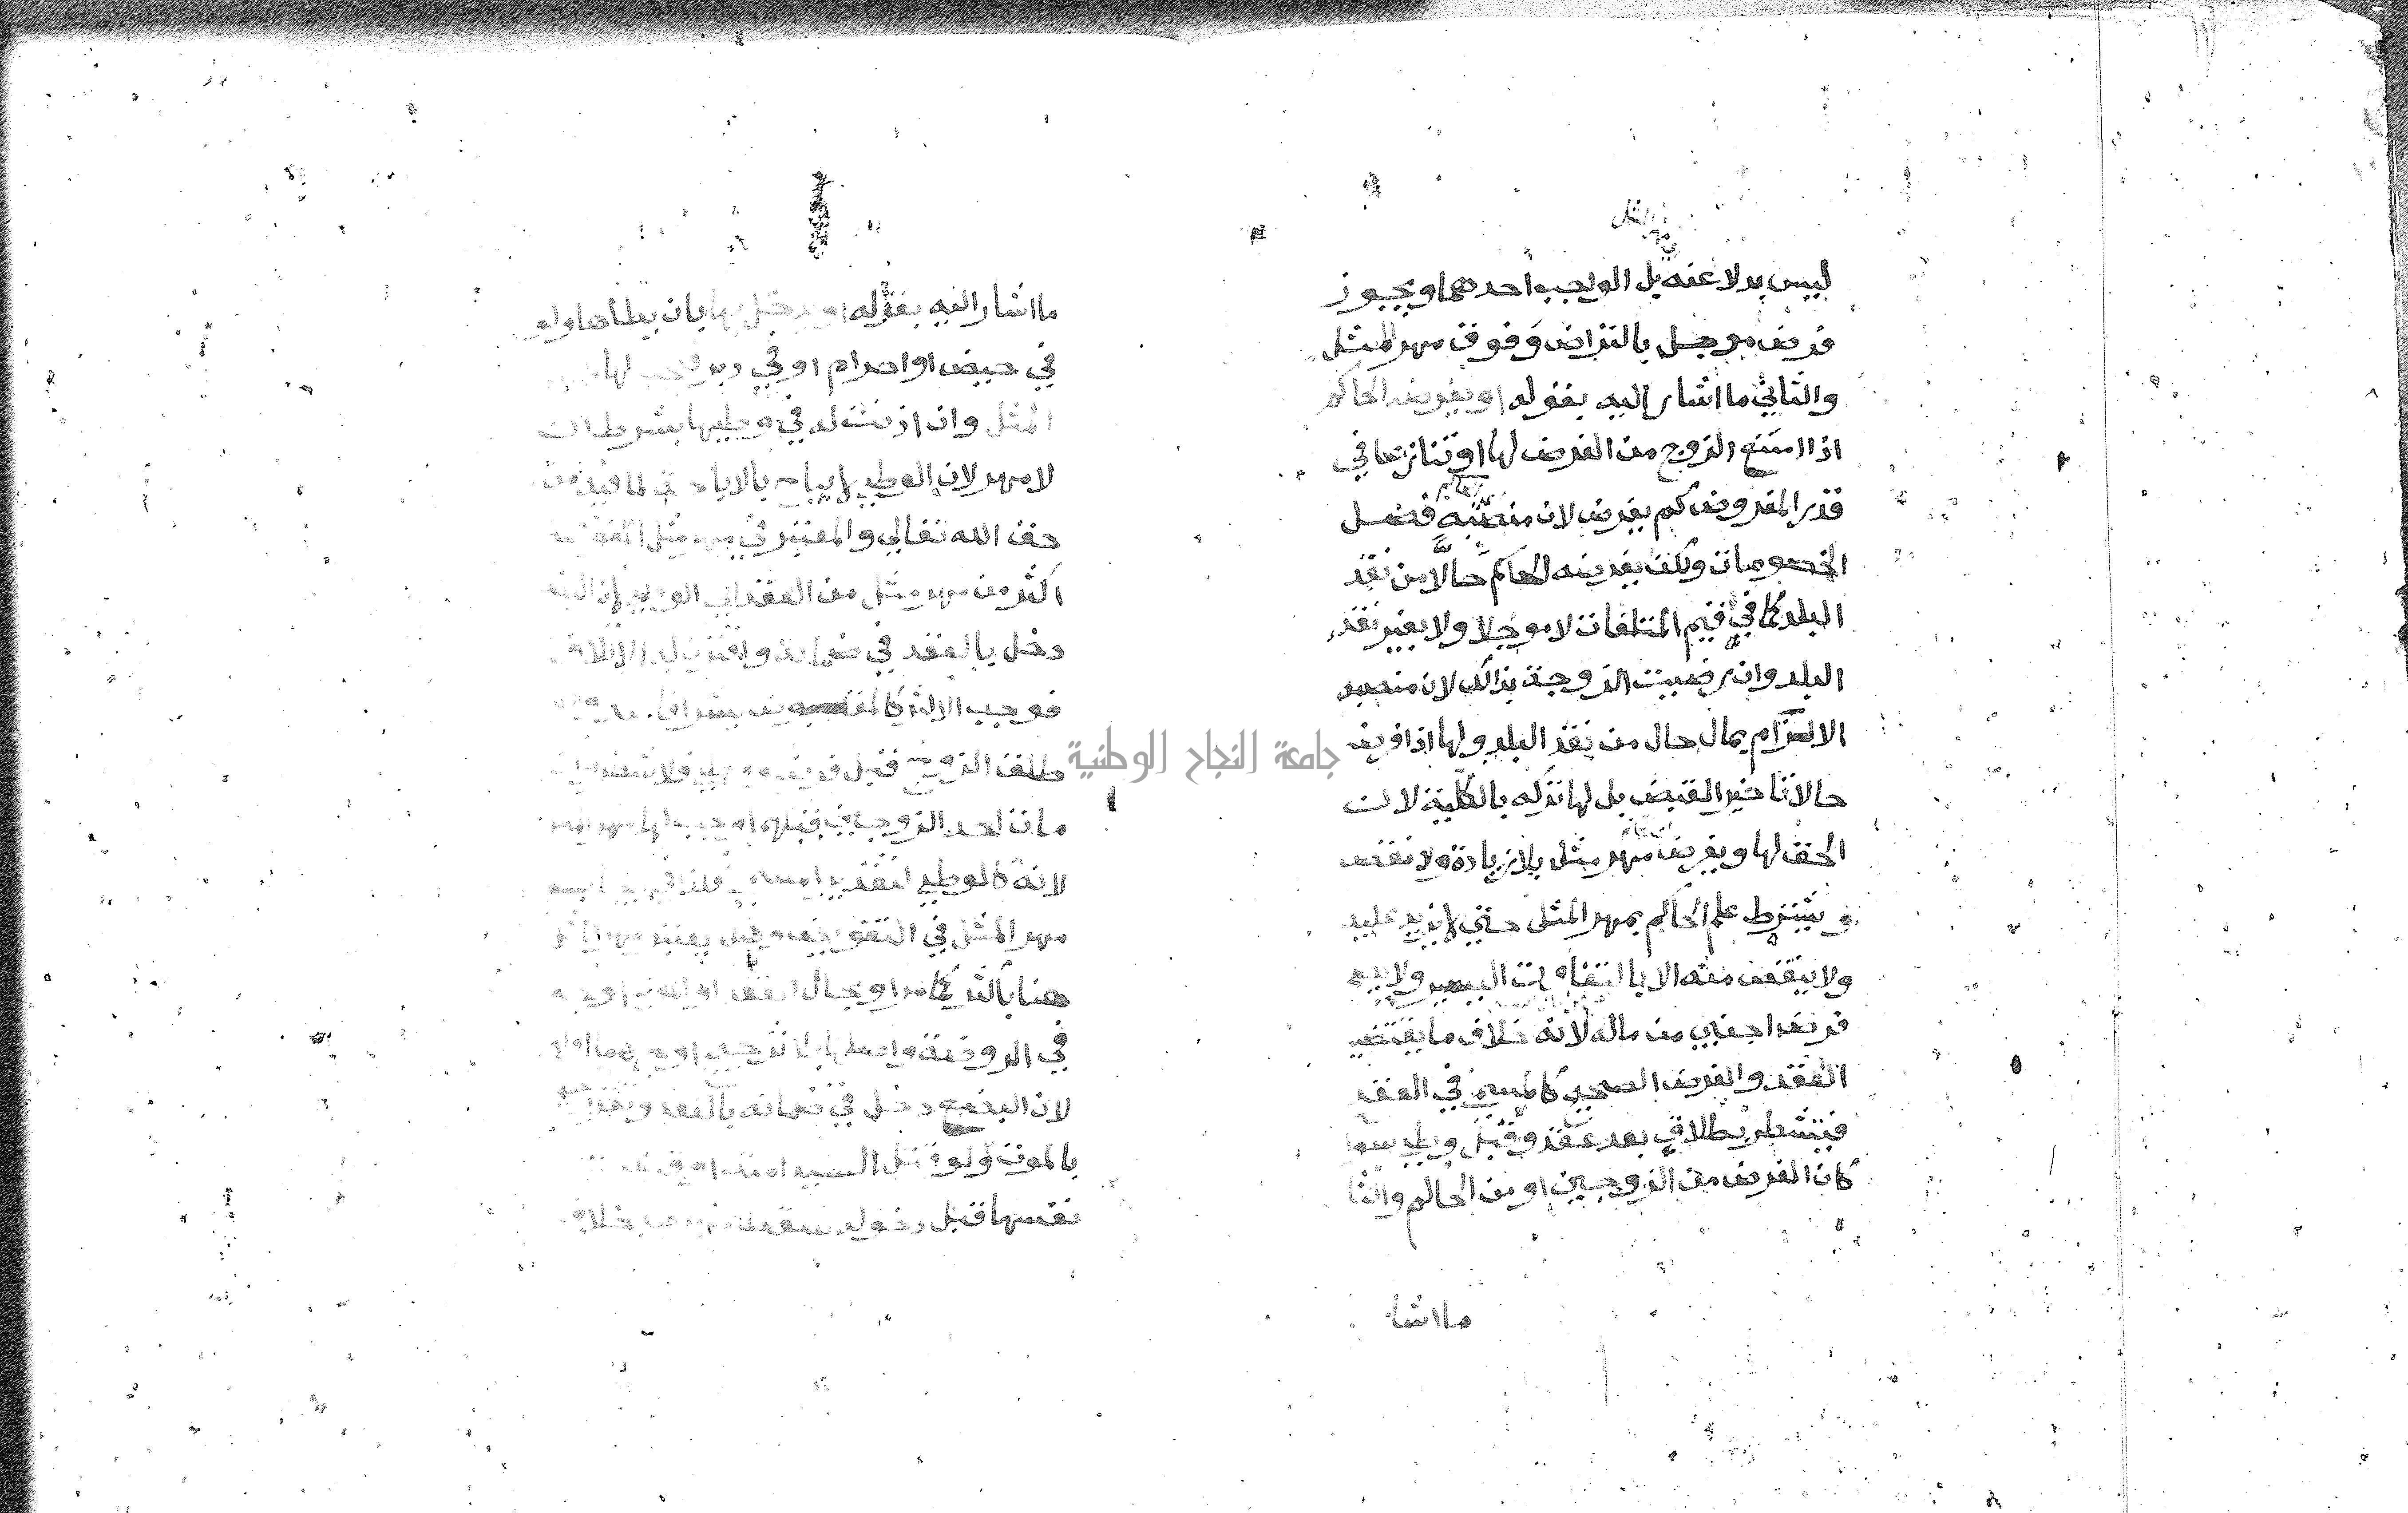 مهر المثل
ليس بدلا عنه بل الواجب احدهما ويجوز
فرض موجل بالتراض وفوق مهر المثل
والثاني ما اشار اليه بقوله او يفرضه الحاكم
اذا امتنع الزوج من الفرض لها او تنازعا في
قدر المفروض كم يفرض لان منصبه فصل
الخصومات ولكن يفرضه الحاكم حالا من نقد
البلد كما في قيم المتلفات لا موجلا ولا بغير نقد
البلد وان رضيت الزوجة بذالك لان منصبه
الالزام بمال حال من نقد البلد ولها اذا فرض
حالا تاخير القبض بل لها تركه بالكلية لان
الحق لها ويفرض مهر مثل بلا زيادة ولا نقص
ويشترط علم الحاكم بمهر المثل حتى لا يزيد عليه
ولا ينقص منه الا بالتفاوت اليسير ولا يصح
فرض اجنبي من ماله لانه خلاف ما يقتضيه
العقد والفرض الصحيح كالمسمى في العقد
فيتشطر بطلاق بعد عقد وقبل وطي سوا
كان الفرض من الزوجين او من الحاكم والثا
ما اشا
ما اشار اليه بقوله او يدخل بها بان يطأها ولو
في حيض او احرام او في دبر لها
المثل وان اذنت له في وطيها بشرط ان
لا مهر لان الوطي لا يباح بالاباحة لما فيه من
حق الله تعالى والمعتبر في مهر مثل
اكثر من مهر مثل من العقد الى الوطي لان البضع
دخل بالعقد في ضمانه واقترن به الاتلاف
فوجب الاكثر كالمقبوض بشرا
طلق الزوج قبل فرض ووطي فلا شطر
مات احد الزوجين قبلهما وجب لها مهر المثل
لانه كالوطي في تقرير المسمى فكذا في
مهر المثل في التفويض وهل يعتبر مهر المثل
هنا بالاكثر كما مر او بحال العقد او الموت اوجه
في الروضة واصلها بلا ترجيح اوجهها اولا
لان البضع دخل في ضمانه بالعقد وتقرر
بالموت ولو قتل السيد امته او قتلت
نفسها قبل دخول سقط بخلاف
جامعة النجاح الوطنية